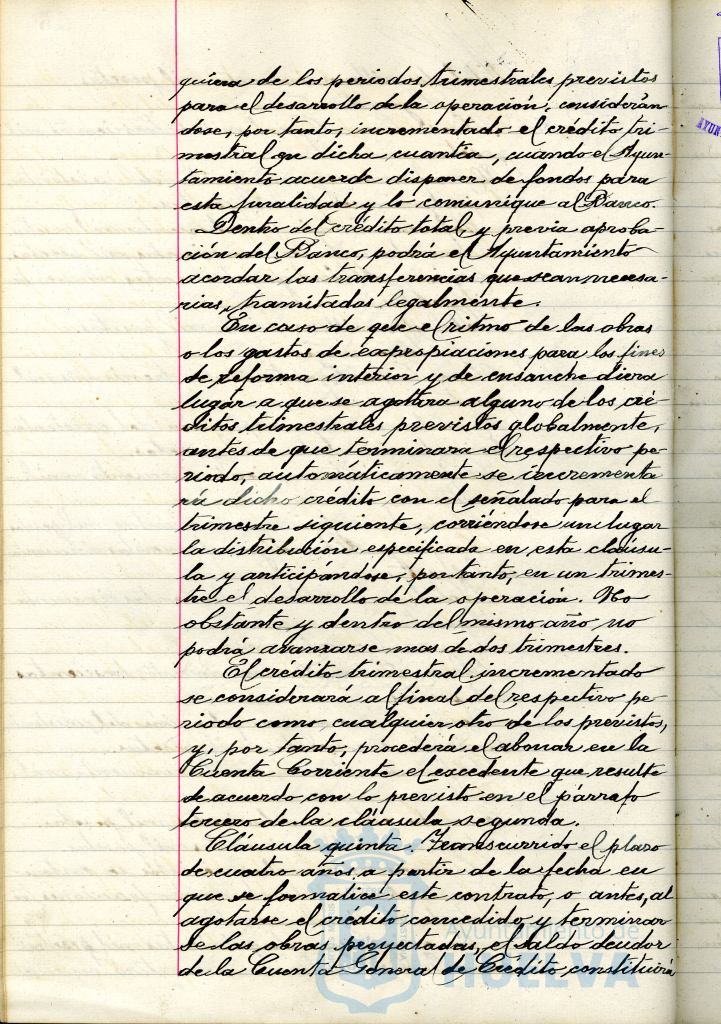 quiera de los periodos trimestrales previstos
para el desarrollo de la operación, considerán
dose, por tanto, incrementado el crédito tri-
mestral en dicha cuantía, cuando el Ayun-
tamiento acuerde disponer de fondos para
esta finalidad y lo comunique al Banco.
Dentro del crédito total, y previa aproba-
ción del Banco, podrá el Ayuntamiento
acordar las transferencias que sean necesa-
rias, tramitadas legalmente.
En caso de que el ritmo de las obras
o los gastos de expropiaciones para los fines
de reforma interior y de ensanche diera
lugar a que se agotara alguno de los cré-
ditos trimestrales previstos globalmente,
antes de que terminara el respectivo pe-
riodo, automáticamente se incrementa
rá dicho crédito con el señalado para el
trimestre siguiente, corriéndose un lugar
la distribución especificada en esta cláusu-
la y anticipándose, por tanto, en un trimes-
tre el desarrollo de la operación. No
obstante y dentro del mismo año, no
podrá avanzarse mas de dos trimestres.
El crédito trimestral incrementado
se considerará al final del respectivo pe-
riodo como cualquier otro de los previstos,
y, por tanto, procederá el abonar en la
Cuenta Corriente el excedente que resulte
de acuerdo con lo previsto en el párrafo
tercero de la cláusula segunda.
Cláusula quinta. Transcurrido el plazo
de cuatro años a partir de la fecha en
que se formalice este contrato, o antes, al
agotarse el crédito concedido y terminar
se las obras proyectadas, el saldo deudor
de la Cuenta General de Crédito constituirá
Ayuntamiento de
HUELVA